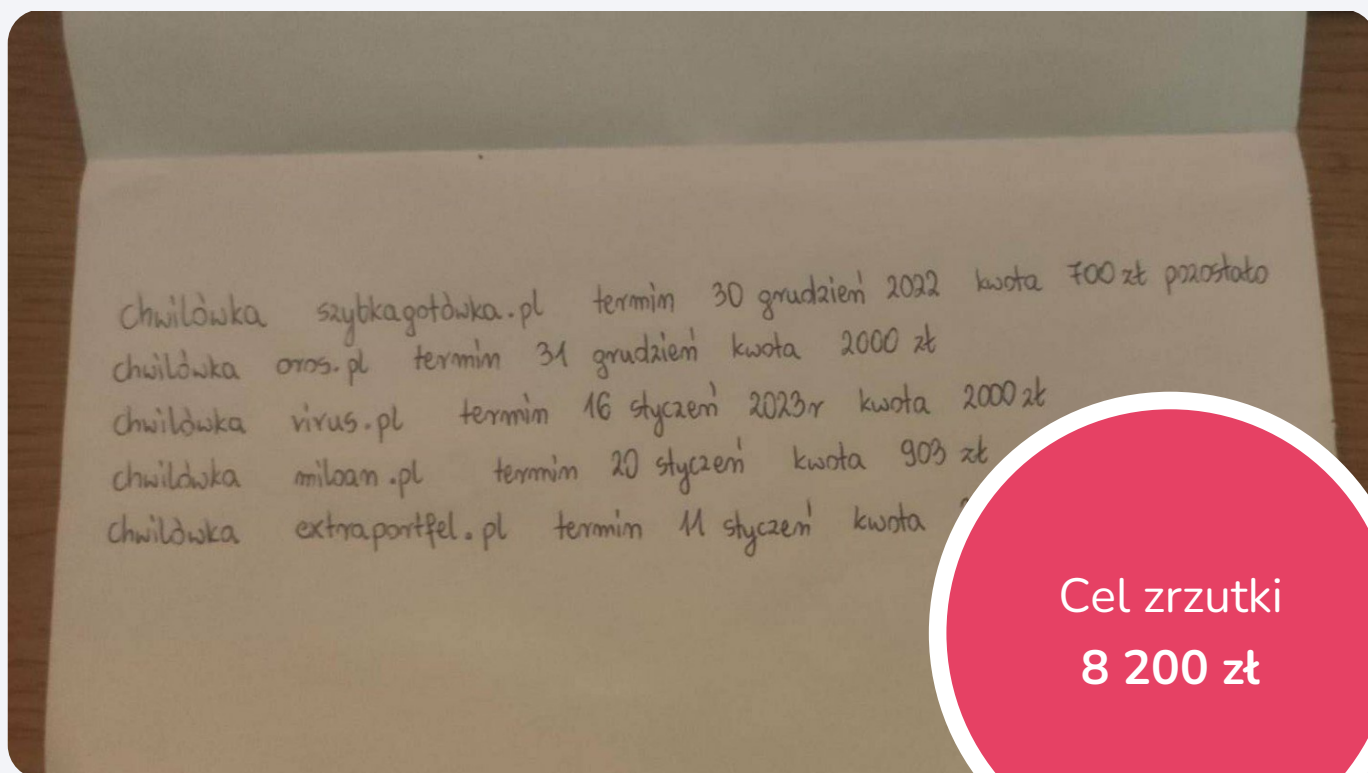 chwilówka szybkagotówka.pl termin 30 grudzień 2022 kwota 700 zł pozostało
chwilówka oros.pl termin 31 grudzień kwota 2000 zł
chwilówka virus.pl termin 16 styczeń 2023r kwota 2000 zł
chwilówka miloan.pl termin 20 styczeń kwota 903 zł
chwilówka extraportfel.pl termin 11 styczeń kwota
Cel zrzutki
8 200 zł